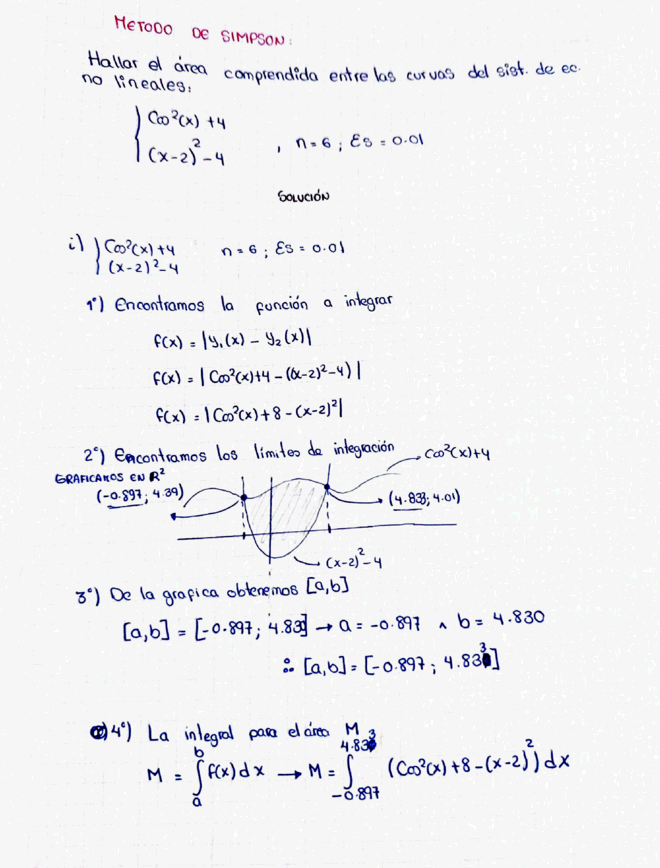 METODO DE SIMPSON:
Hallar el área comprendida entre las curvas del sist. de ec.
no lineales:
{ Cos²(x) + 4
(x-2)² - 4 , n = 6 ; Es = 0.01
SOLUCIÓN
i) { Cos²(x) + 4 n = 6 ; Es = 0.01
(x-2)² - 4
1°) Encontramos la función a integrar
f(x) = |y₁(x) - y₂(x)|
f(x) = | Cos²(x)+4 - ((x-2)²-4) |
f(x) = | Cos²(x) + 8 - (x-2)² |
2°) Encontramos los límites de integración
GRAFICAMOS EN R²
Cos²(x)+4
(-0.897; 4.39)
(4.833; 4.01)
(x-2)² - 4
3°) De la grafica obtenemos [a,b]
[a,b] = [-0.897; 4.833] → a = -0.897 ∧ b = 4.830
∴ [a,b] = [-0.897 ; 4.833]
4°) La integral para el área M
M = ∫ₐᵇ f(x) dx → M = ∫₋₀.₈₉₇⁴·⁸³³ (Cos²(x) + 8 - (x-2)²) dx